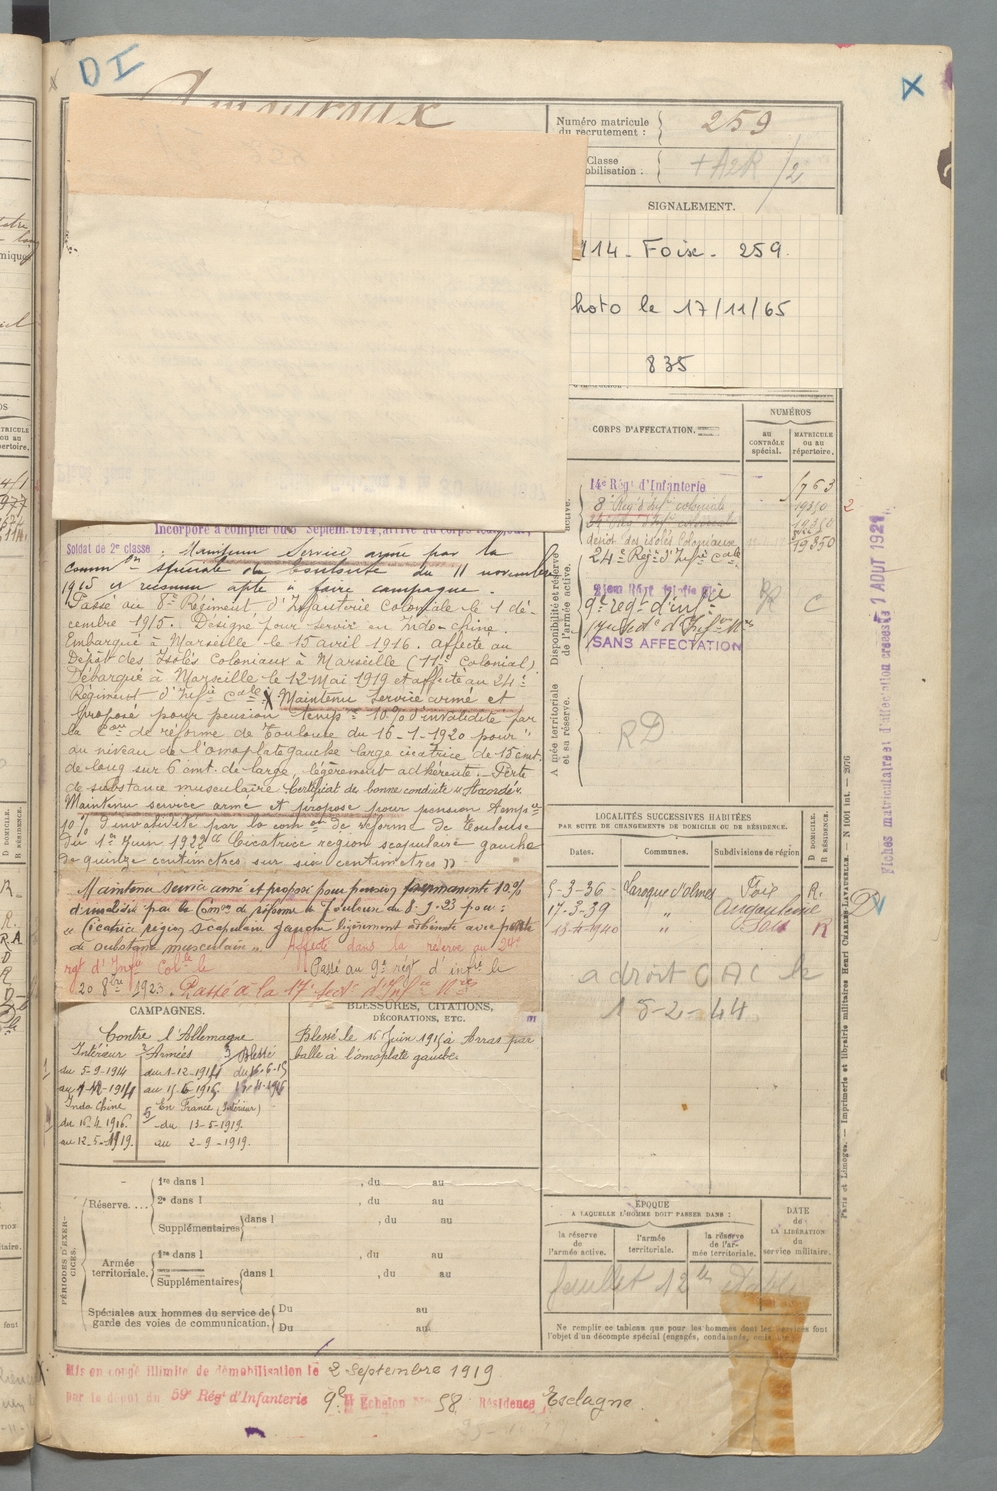 DI
X
Amouroux
Numéro matricule
du recrutement :
259
Classe
obilisation :
/2
SIGNALEMENT.
914. Foix. 259.
hoto le 17/11/65
835
CORPS D'AFFECTATION.
NUMÉROS
au
CONTRÔLE
spécial.
MATRICULE
ou au
répertoire.
Disponibilité et réserve
de l'armée active.
14e Régt d'Infanterie
763
8e Régt d'Infie coloniale
24e Régt d'Infie coloniale
dépôt des isolés Coloniaux
19350
24e Régt d'Infie Cale
9e regt d'infie
C
SANS AFFECTATION
Armée territoriale
et sa réserve.
RD
Incorporé à compter du 5 Septem. 1914, arrivé au corps
Soldat de 2e classe ; Maintenu Service armé par la
Common spéciale de Toulouse du 11 novembre
1915 et reconnu apte à faire campagne.
Passé au 8e Régiment d'Infanterie Coloniale le 1 dé-
cembre 1915. Désigné pour servir en Indo-chine.
Embarqué à Marseille le 15 avril 1916. Affecté au
Dépôt des Isolés Coloniaux à Marseille (11e Colonial)
Débarqué à Marseille le 12 Mai 1919 et affecté au 24e
Régiment d'Infie Cale. X Maintenu Service armé et
proposé pour pension tempre 10% d'invalidité par
la Con de réforme de Toulouse du 16-1-1920 pour "
au niveau de l'omoplate gauche large cicatrice de 15 cmt.
de long sur 6 cmt. de large, légèrement adhérente. - Perte
de substance musculaire. Certificat de bonne conduite "Accordé".
Maintenu service armé et proposé pour pension tempre
10% d'invalidité par la comon de réforme de Toulouse
du 1er Juin 1922 "Cicatrice région scapulaire gauche
de quinze centimètres sur six centimètres"
Maintenu service armé et proposé pour pension permanente 10%
d'invalidité par la Comon de réforme de Toulouse du 8.9.23 pour :
"Cicatrice région scapulaire gauche légèrement adhérente avec perte
de substance musculaire". Affecté dans la réserve au 24e
regt d'Infie Colle le
Passé au 9e régt d'infie le
20 8bre 1923. Passé à la 17e
CAMPAGNES.
Contre l'Allemagne
Intérieur
du 5-9-1914
Indo Chine
du 16-4-1916.
au 12-5-1919.
2 Armées
du 1-12-1914
au 15-6-1915
3 Blessé
du 16-6-15
5 En France (Intérieur)
du 13-5-1919.
au 2-9-1919.
BLESSURES, CITATIONS,
DÉCORATIONS, ETC.
Blessé le 16 Juin 1915 à Arras par
balle à l'omoplate gauche.
LOCALITÉS SUCCESSIVES HABITÉES
PAR SUITE DE CHANGEMENTS DE DOMICILE OU DE RÉSIDENCE.
Dates.
Communes.
Subdivisions de région
D DOMICILE.
R RÉSIDENCE.
5-3-36 Laroque d'olmes Foix R.
17-3-39 " Angoulême
" Foix R
a droit CAC le
15-2-44
PÉRIODES D'EXER-
CICES.
Réserve....
1re dans l , du au
2e dans l , du au
Supplémentaires dans l , du au
Armée
territoriale.
1re dans l , du au
Supplémentaires dans l , du au
Spéciales aux hommes du service de
garde des voies de communication.
Du au
Du au
ÉPOQUE
A LAQUELLE L'HOMME DOIT PASSER DANS :
la réserve
de
l'armée active.
l'armée
territoriale.
la réserve
de l'ar-
mée territoriale.
DATE
de
LA LIBÉRATION
du
service militaire.
Ne remplir ce tableau que pour les hommes dont les services font
l'objet d'un décompte spécial (engagés, condamnés, omis, etc.)
Mis en congé illimité de démobilisation le 2 Septembre 1919
par le dépôt du 59e Régt d'Infanterie 9e Echelon No 58 Résidence Esclagne.
Fiches matriculaire et d'affectation créées le 7 AOUT 1924
Paris et Limoges. — Imprimerie et librairie militaires Henri CHARLES-LAVAUZELLE. — N 1001 int. — 2076